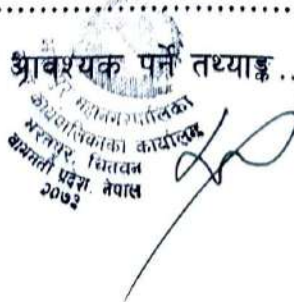 आवश्यक पर्ने तथ्याङ्क ..
महानगरपालिका
कार्यपालिकाको कार्यालय
भरतपुर, चितवन
बागमती प्रदेश, नेपाल
२०७३